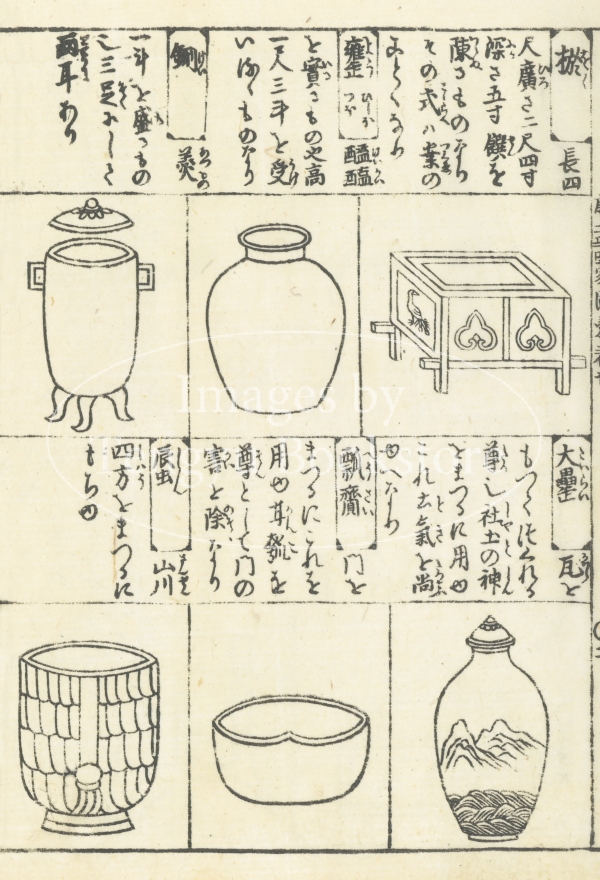 棜 長四
尺廣さ二尺四寸
深さ五寸饌を
陳るものなり
その式ハ案の
ことくなり
甕
醯醢
を實るもの也高
一尺三斗を受
いるゝものなり
鉶
羹
一斗を盛るもの
三足にして
両耳あり
大罍
瓦を
もつてつくれる
尊也社土の神
をまつるに用ゆ
これ古氣を尚
ゆへなり
瓢齎
門を
まつるにこれを
用ゆ其
尊として門の
害を除なり
辰虫
山川
四方をまつるに
もちゆ
Images by